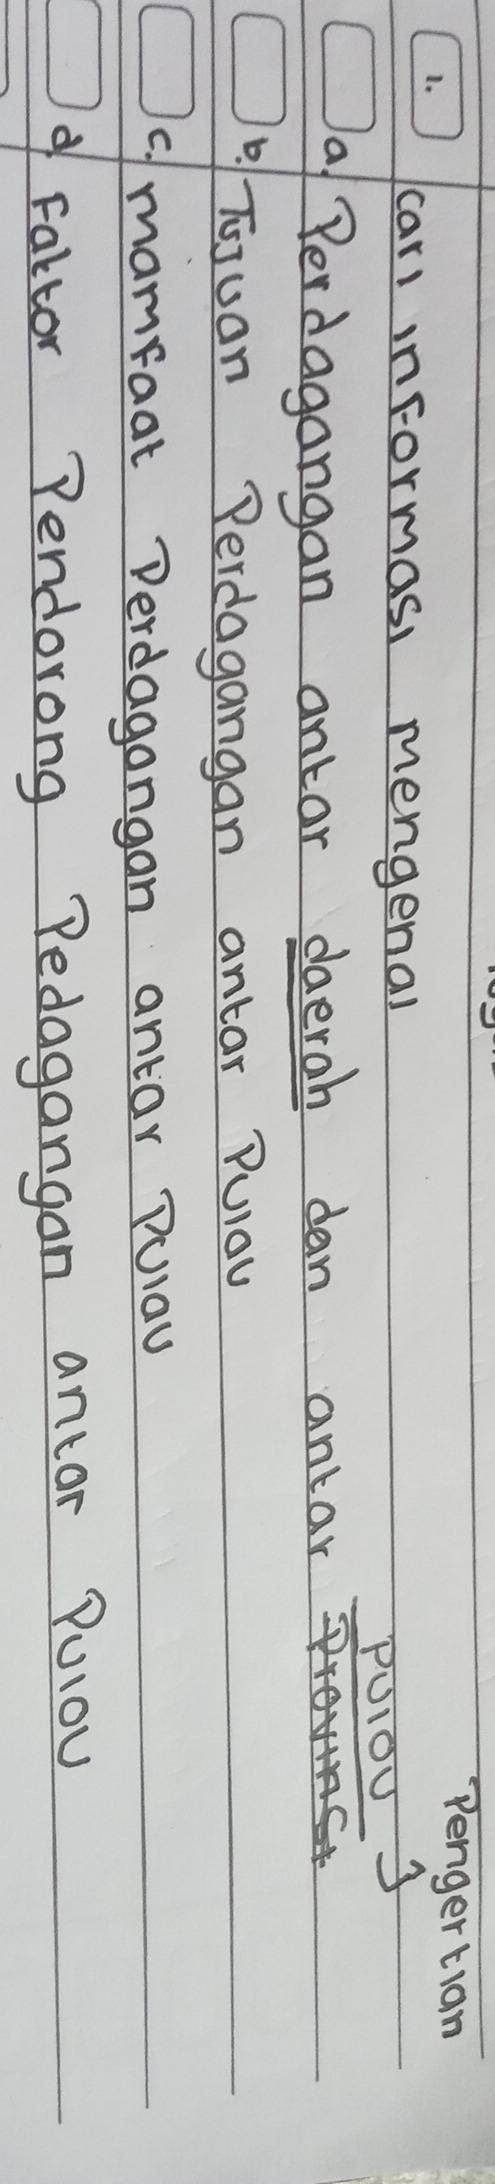 Pengertian
1. cari informasi mengenai
a. Perdagangan antar daerah dan antar Provinsi Pulau
b. Tujuan Perdagangan antar Pulau
c. mamfaat Perdagangan antar Pulau
d. Faktor Pendorong Pedagangan antar Pulau